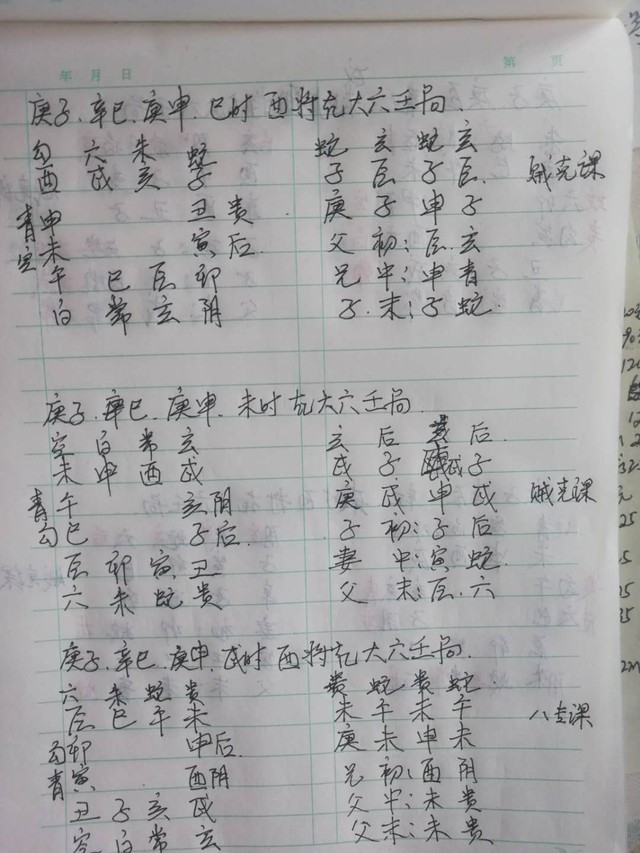 年 月 日 第 页
庚子、辛巳、庚申、巳时酉将充大六壬局
勾 六 朱 蛇 蛇 玄 蛇 玄
酉 戌 亥 子 子 辰 子 辰 贼克课
青申 丑贵 庚 子 申 子
空未 寅后 父 初:辰 玄
午 巳 辰 卯 兄 中:申 青
白 常 玄 阴 子 末:子 蛇
庚子、辛巳、庚申、未时充大六壬局
空 白 常 玄 玄 后 玄 后
未 申 酉 戌 戌 子 戌 子
青午 亥阴 庚 戌 申 戌 贼克课
勾巳 子后 子 初:子 后
辰 卯 寅 丑 妻 中:寅 蛇
六 朱 蛇 贵 父 末:辰 六
庚子、辛巳、庚申、戌时酉将充大六壬局
六 朱 蛇 贵 贵 蛇 贵 蛇
辰 巳 午 未 未 午 未 午 八专课
勾卯 申后 庚 未 申 未
青寅 酉阴 兄 初:酉 阴
丑 子 亥 戌 父 中:未 贵
空 白 常 玄 父 末:未 贵